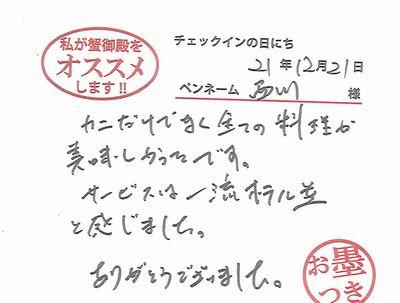 私が蟹御殿を
オススメ
します!!
チェックインの日にち
21年12月21日
ペンネーム 西川 様
カニだけでなく全ての料理が
美味しかったです。
サービスは一流ホテル並
と感じました。
ありがとうございました。
お墨
つき